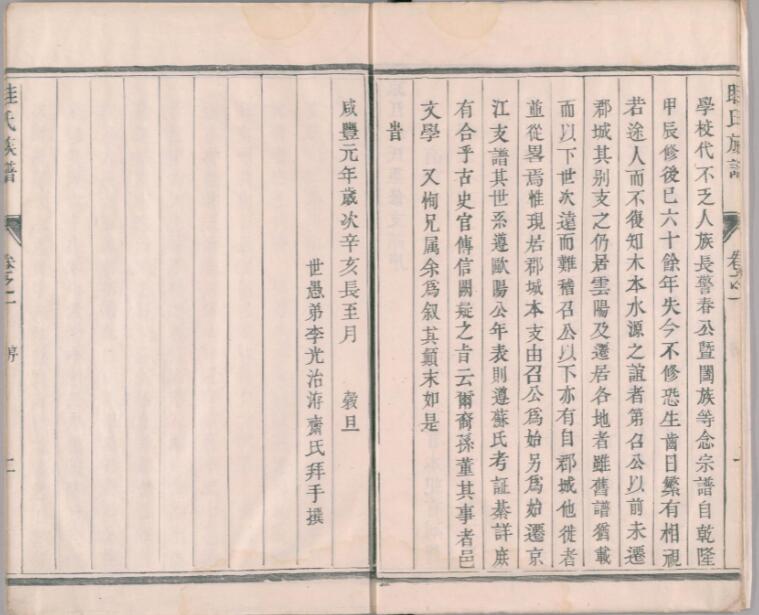 氏族譜
卷之一
學校代不乏人族長警春公暨闔族等念宗譜自乾隆
甲辰修後已六十餘年失今不修恐生齒日繁有相視
若途人而不復知木本水源之誼者第召公以前未遷
郡城其別支之仍居雲陽及遷居各地者雖舊譜猶載
而以下世次遠而難稽召公以下亦有自郡城他徙者
並從畧焉惟現居郡城本支由召公爲始另爲始遷京
江支譜其世系遵歐陽公年表則遵蘇氏考証綦詳庶
有合乎古史官傳信闕疑之旨云爾裔孫董其事者邑
文學 又恂兄属余爲叙其顛末如是
旹
咸豐元年歲次辛亥長至月 穀旦
世愚弟李光治洊齋氏拜手撰
氏族譜
卷之一
序